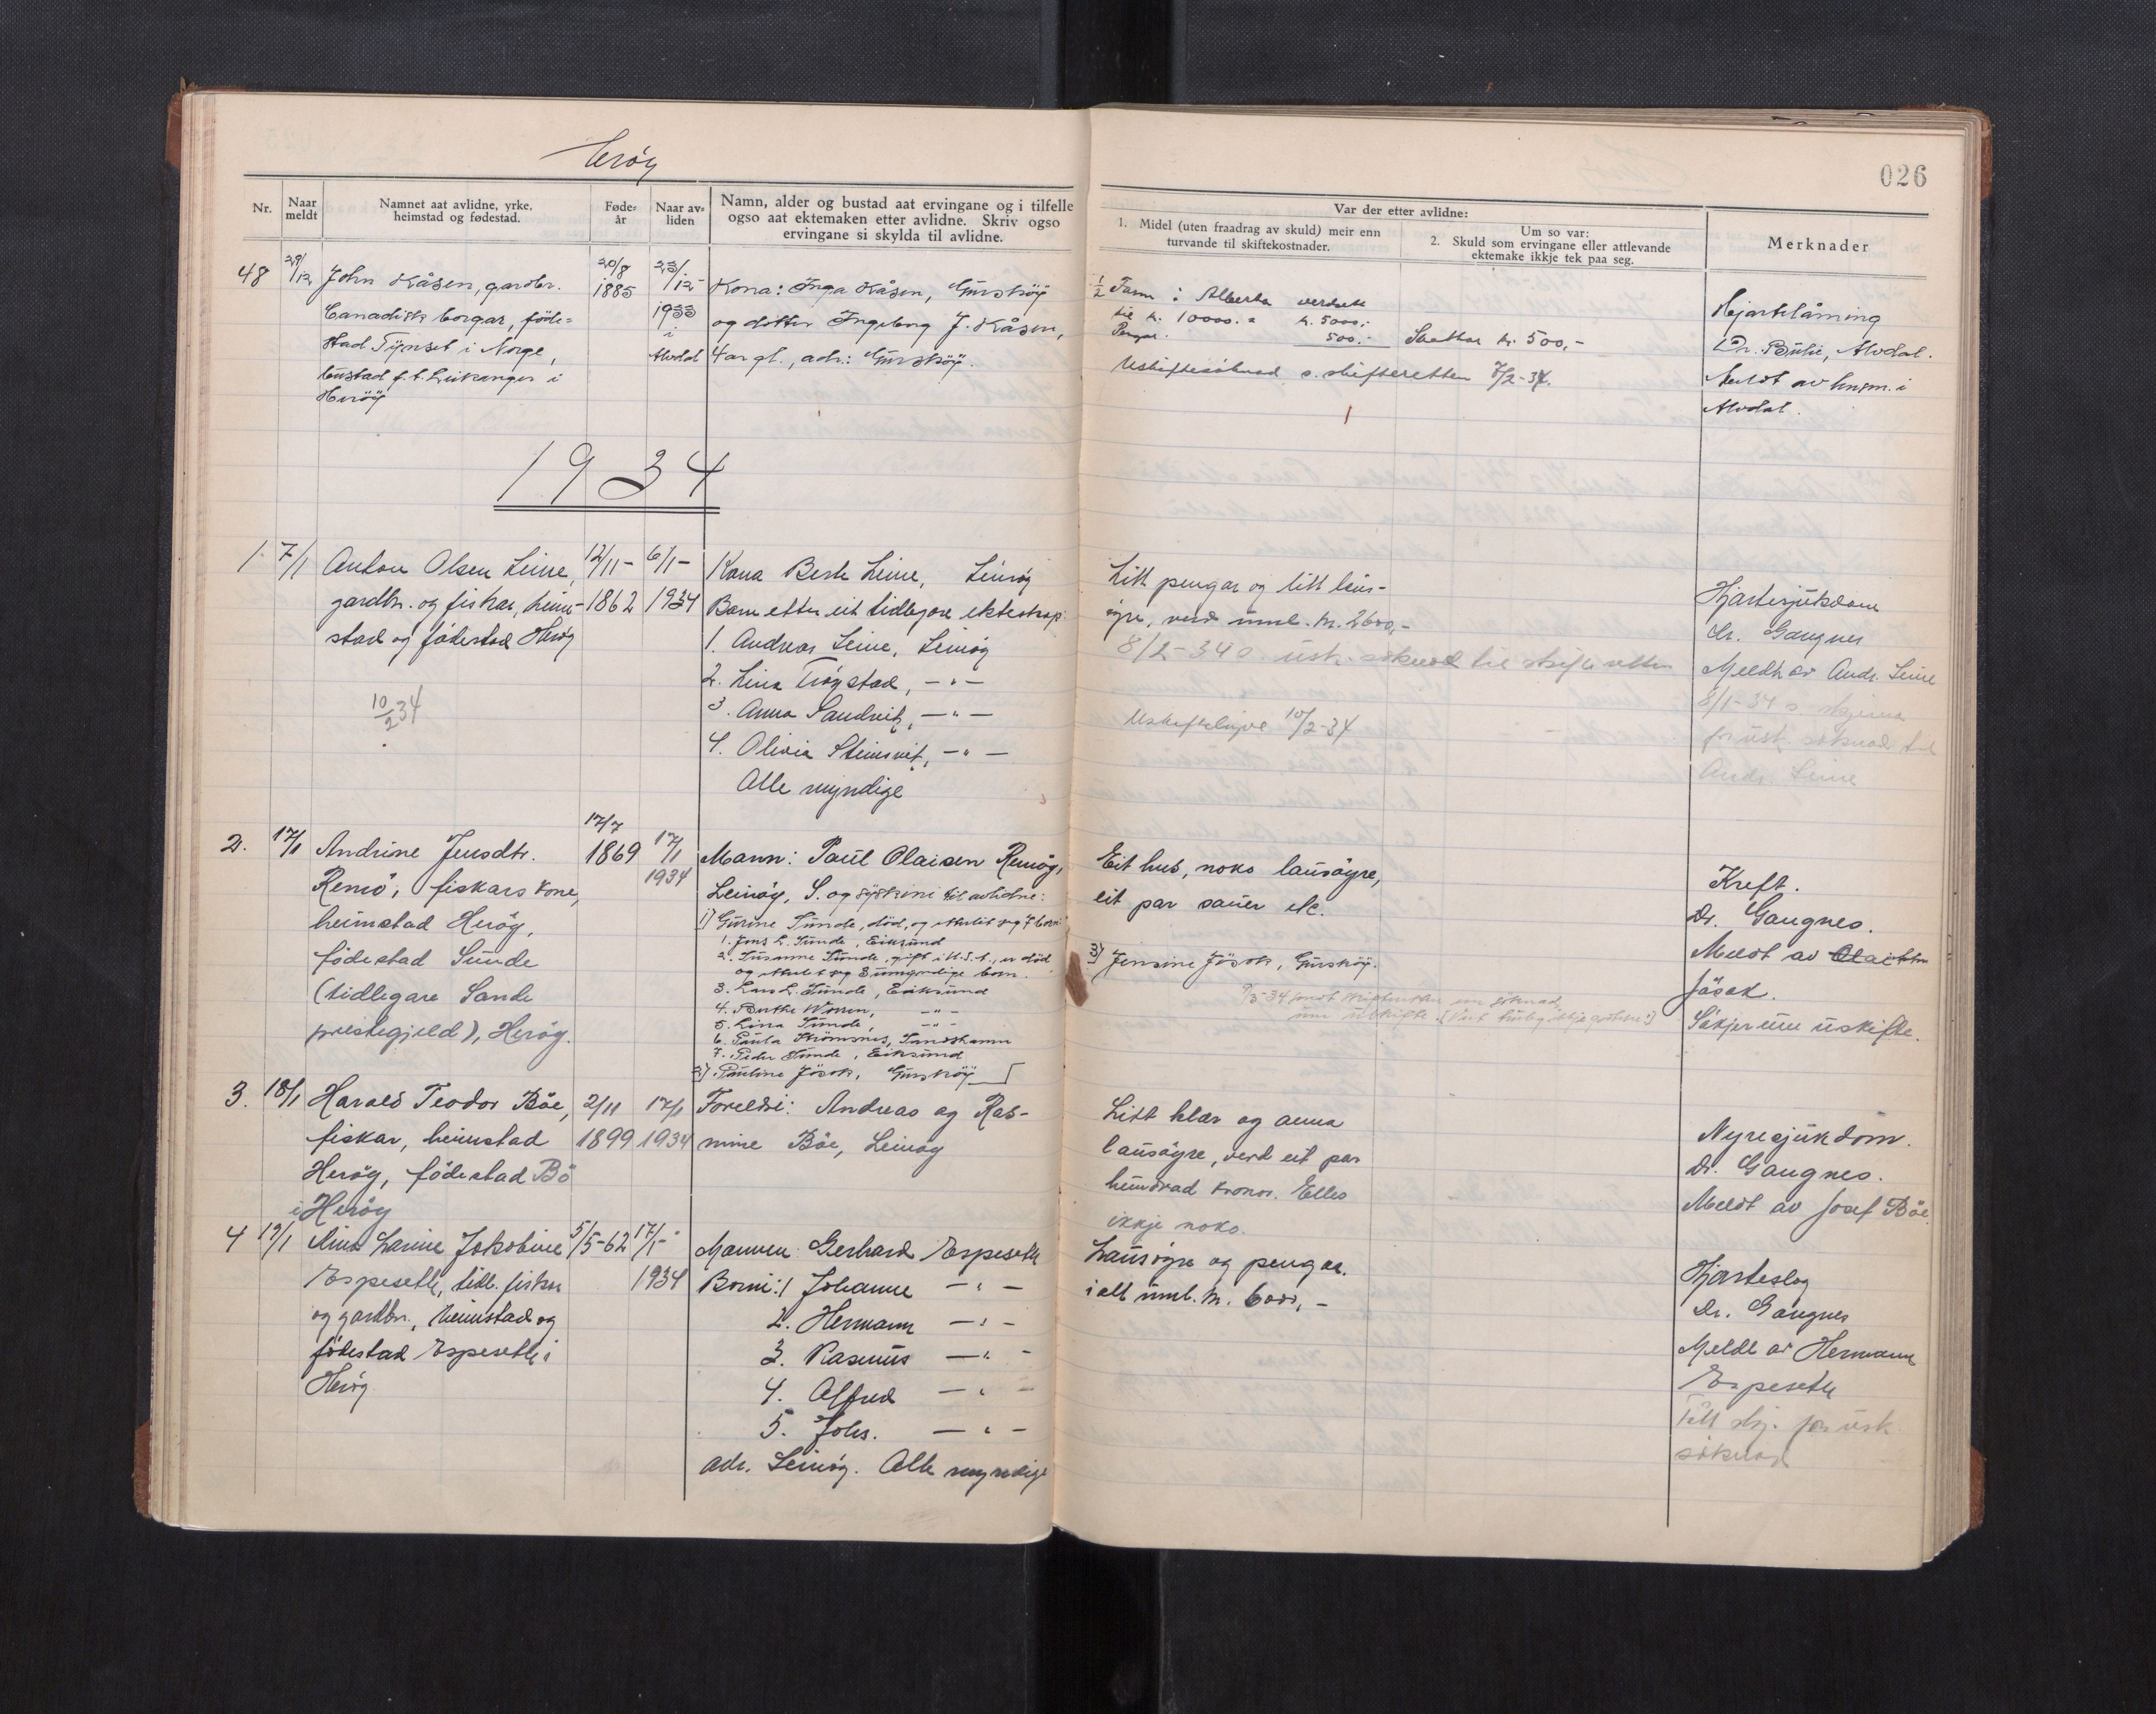 Herøy
026
Nr.
Naar meldt
Namnet aat avlidne, yrke, heimstad og fødestad.
Føde-år
Naar av-liden
Namn, alder og bustad aat ervingane og i tilfelle
ogso aat ektemaken etter avlidne. Skriv ogso
ervingane si skylda til avlidne.
Var der etter avlidne:
1. Midel (uten fraadrag av skuld) meir enn
turvande til skiftekostnader.
Um so var:
2. Skuld som ervingane eller attlevande
ektemake ikkje tek paa seg.
Merknader
48
29/12
John Kåsen, gardbr.
Canadisk borgar, føde=
stad Tynset i Norge,
bustad f.t. Leikanger i
Herøy
20/8
1885
23/12
1933
i
Alvdal
Kona: Inga Kåsen, Gurskøy
og dotter Ingeborg J. Kåsen,
4 år gl., adr.: Gurskøy.
½ Farm i Alberta verdsett
til kr. 10000.= kr. 5000,-
Pengar. 500.-
Skattar kr. 500,-
Uskiftesøknad s. skifteretten 7/2-34.
Hjartelåming
Dr. Buhe, Alvdal.
Meldt av lensm. i
Alvdal.
1934
1.
7/1
Anton Olsen Leine,
gardbr. og fiskar, heim-
stad og fødestad Herøy
10/2 34
12/11-
1862
6/1-
1934
Kona Berte Leine, Leinøy
Born etter eit tidlegare ekteskap:
1. Andreas Leine, Leinøy
2. Lina Trøystad, -"-
3. Anna Sandvik, -"-
4. Olivia Steinsvik, -"-
Alle myndige
Litt pengar og litt laus-
øyre, verd uml. kr. 2600,-
8/2-34 s. usk. søknad til skifteretten
Uskifteløyve 10/2-34
Hjartesjukdom
Dr. Gaugnes
Meldt av Andr. Leine
8/1-34 s. skjema
for usk. søknad til
Andr. Leine
2.
17/1
Andrine Jensdtr.
Remø, fiskars kone,
heimstad Herøy,
fødestad Sunde
(tidlegare Sande
prestegjeld), Herøy.
17/7
1869
17/1
1934
Mann: Paul Olaisen Remøy,
Leinøy, S. og syskini til avlidne:
1) Gurine Sunde, død, og etterlét seg 7 born:
1. Jens L. Sunde, Eiksund
2. Susanne Sunde, gift i U.S.A., er død
og etterlét seg 3 umyndige born.
3. Lars L. Sunde, Eiksund
4. Berthe Worren, -"-
5. Lina Sunde, -"-
6. Paula Strømsnes, Sandshamn
7. Peder Sunde, Eiksund
2) Pauline Jøsok, Gurskøy
Eit hus, noko lausøyre,
eit par sauer etc.
3) Jensine Jøsok, Gurskøy.
Kreft.
Dr. Gaugnes.
Meldt av
Jøsok.
Søkjer um uskifte.
3.
18/1
Harald Teodor Bøe,
fiskar, heimstad
Herøy, fødestad Bø
i Herøy
2/11
1899
17/1
1934
Foreldri: Andreas og Ras-
mine Bøe, Leinøy
Litt klær og anna
lausøyre, verd eit par
hundrad kronor. Elles
ikkje noko.
Nyresjukdom.
Dr. Gaugnes.
Meldt av Josef Bøe
4
19/1
Ane Larine Jokobine
Espeseth, tidl. fiskar
og gardbr., heimstad og
fødestad Espeseth i
Herøy
5/5-62
17/1-
1934
Mannen: Gerhard Espeseth
Born: 1 Johanne -"-
2. Hermann -"-
3. Rasmus -"-
4. Alfred -"-
5. Johs. -"-
adr. Leinøy. Alle myndige
Lausøyre og pengar.
i alt uml. kr. 6000,-
Hjarteslag
Dr. Gaugnes
Meldt av Hermann
Espeseth
Fått skj. for usk.
søknad